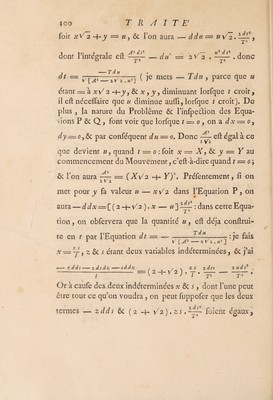 100 TRAITÉ
soit x√2 + y = u, & l'on aura — ddu = u√2 . 2dt²/T² ,
dont l'intégrale est A²dt²/T² — du² = 2√2 . u²dt²/T² . donc
dt = —Tdu/√[A² — 2√2.u²] ( je mets — Tdu, parce que u
étant = à x√2 + y, & x, y, diminuant lorsque t croit,
il est nécessaire que u diminue aussi, lorsque t croit). De
plus, la nature du Problême & l'inspection des Equa-
tions P & Q, font voir que lorsque t = 0, on a dx = 0,
dy = 0, & par conséquent du = 0. Donc A²/2√2 est égal à ce
que devient u, quand t = 0 : soit x = X, & y = Y au
commencement du Mouvement, c'est-à-dire quand t = 0 ;
& l'on aura A²/2√2 = (X√2 + Y)². Présentement, si on
met pour y sa valeur u — x√2 dans l'Equation P, on
aura — ddx = [(2 + √2). x — u] 2dt²/T² : dans cette Equa-
tion, on observera que la quantité u, est déja construi-
te en t par l'Equation dt = — Tdu/√[A² — 2√2.u²] : je fais
x = zs/T, z & s étant deux variables indéterminées, & j'ai
— zdds — 2dsdz — sddz/T = (2 + √2). zs/T . 2dt²/T² — 2udt²/T² .
Or à cause des deux indéterminées z & s, dont l'une peut
être tout ce qu'on voudra, on peut supposer que les deux
termes — zdds & (2 + √2). zs. 2dt²/T² soient égaux,